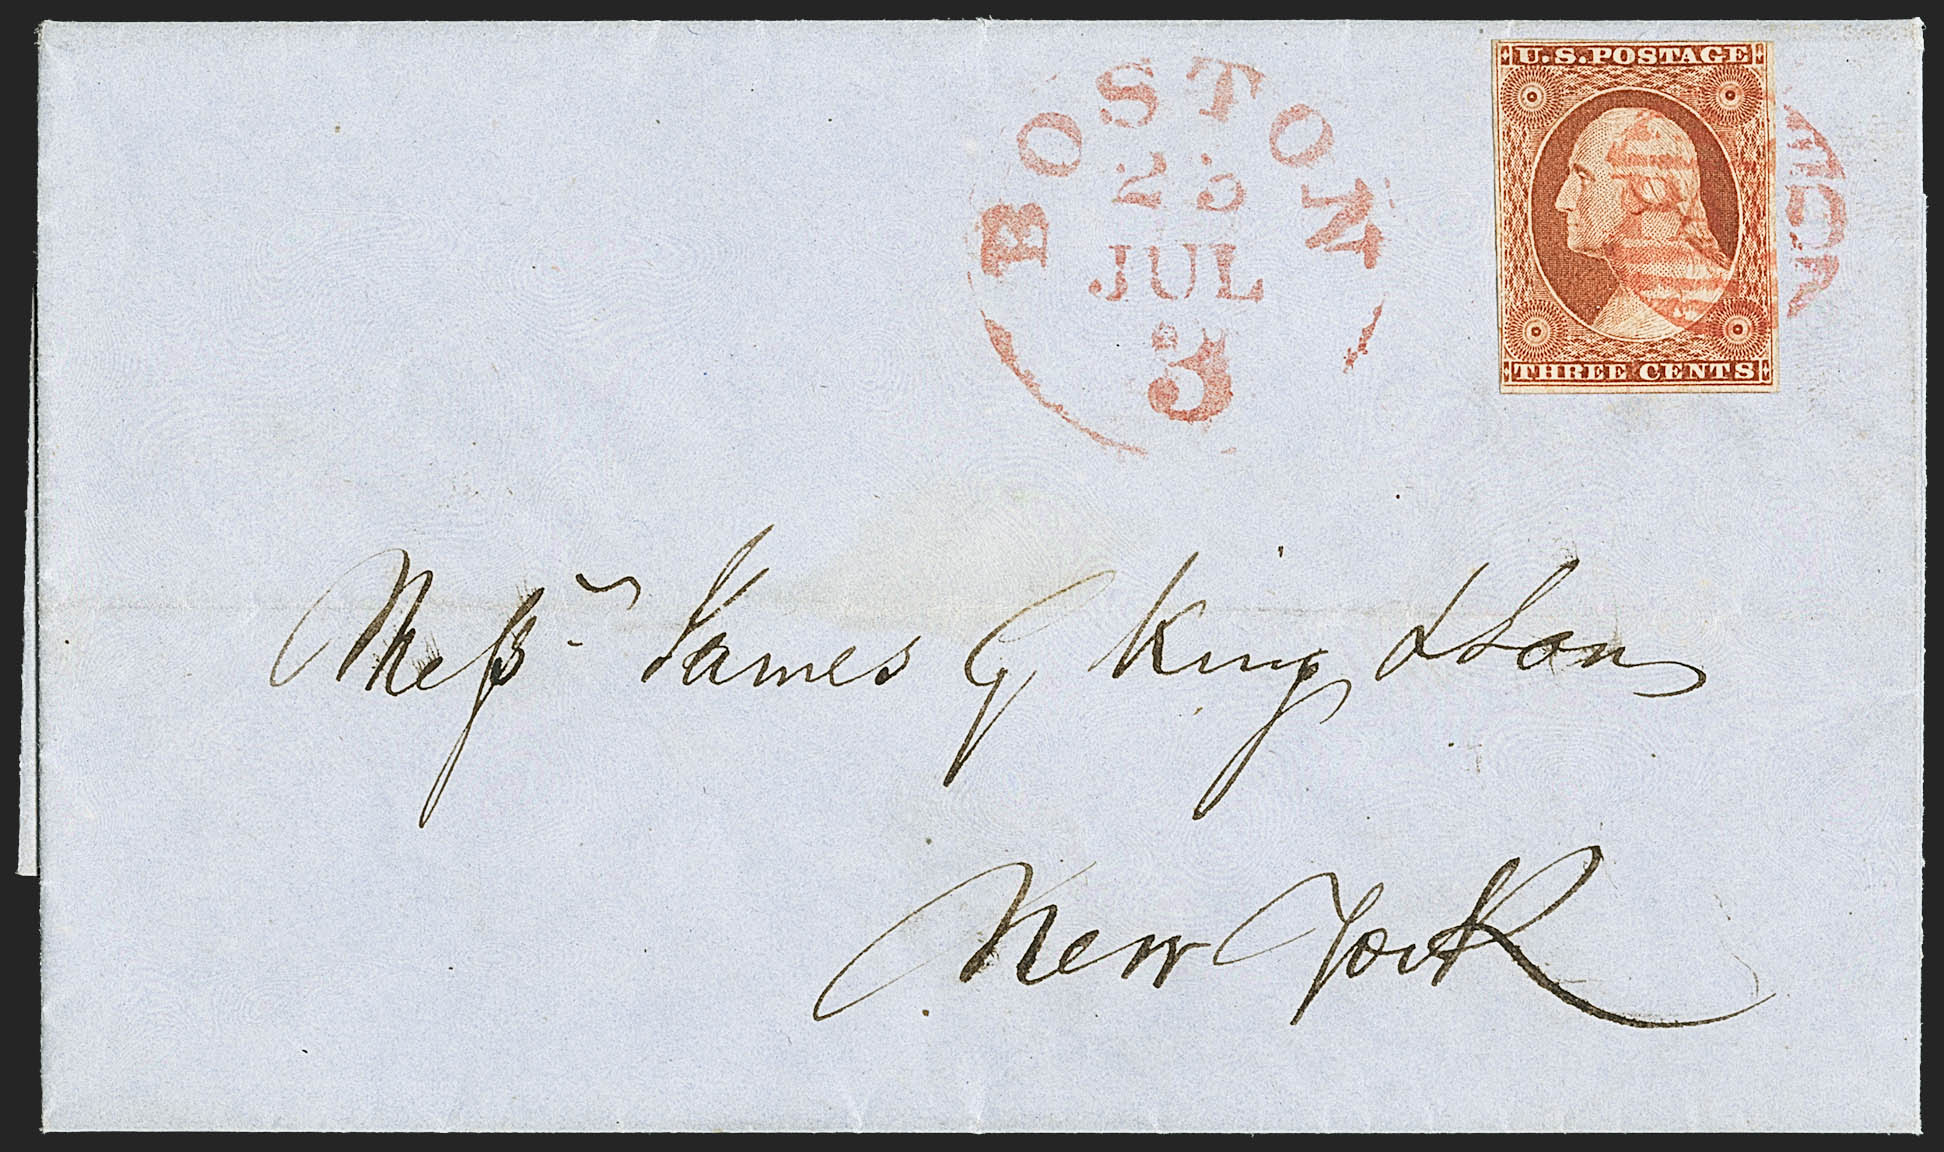 BOSTON
25
JUL
3
U.S. POSTAGE
THREE CENTS
Messrs James G King & Sons
New York